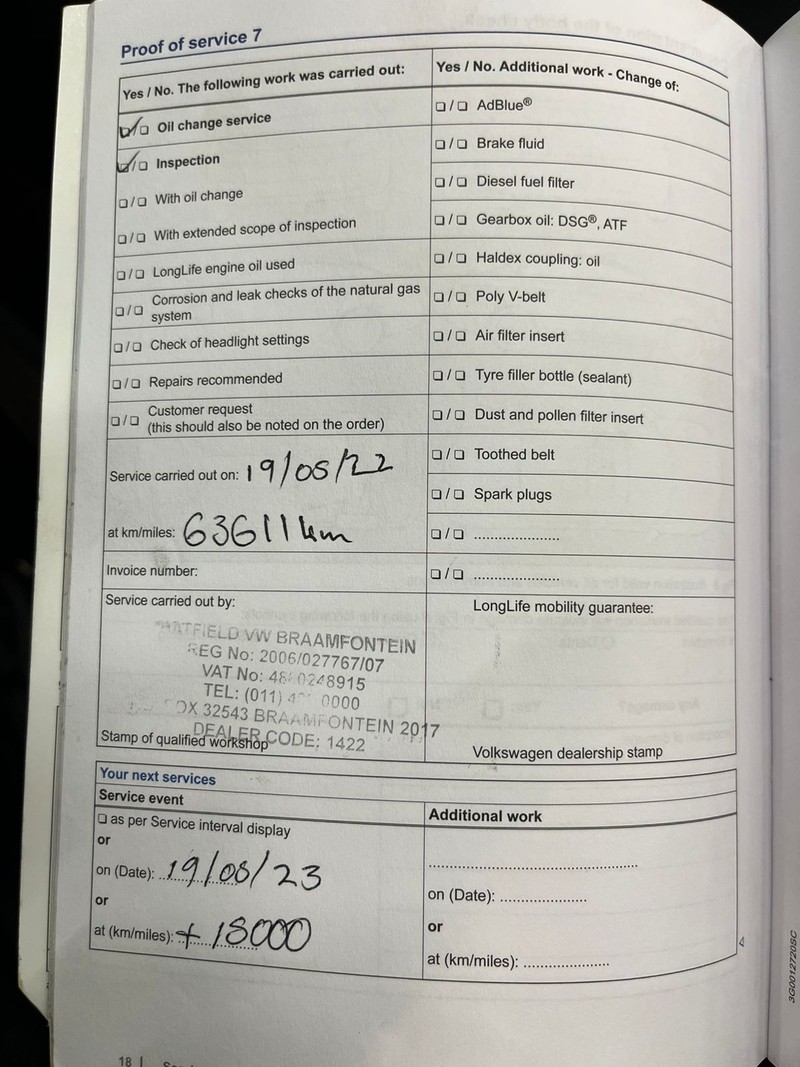 Proof of service 7
Yes / No. The following work was carried out:
☑/☐ Oil change service
☑/☐ Inspection
☐/☐ With oil change
☐/☐ With extended scope of inspection
☐/☐ LongLife engine oil used
☐/☐ Corrosion and leak checks of the natural gas
system
☐/☐ Check of headlight settings
☐/☐ Repairs recommended
☐/☐ Customer request
(this should also be noted on the order)
Service carried out on: 19/05/22
at km/miles: 63611km
Invoice number:
Service carried out by:
HATFIELD VW BRAAMFONTEIN
REG No: 2006/027767/07
VAT No: 0248915
TEL: (011) 0000
BOX 32543 BRAAMFONTEIN 2017
DEALER CODE: 1422
Stamp of qualified workshop
Yes / No. Additional work - Change of:
☐/☐ AdBlue®
☐/☐ Brake fluid
☐/☐ Diesel fuel filter
☐/☐ Gearbox oil: DSG®, ATF
☐/☐ Haldex coupling: oil
☐/☐ Poly V-belt
☐/☐ Air filter insert
☐/☐ Tyre filler bottle (sealant)
☐/☐ Dust and pollen filter insert
☐/☐ Toothed belt
☐/☐ Spark plugs
☐/☐ .....................
☐/☐ .....................
LongLife mobility guarantee:
Volkswagen dealership stamp
Your next services
Service event
☐ as per Service interval display
or
on (Date): 19/05/23
or
at (km/miles): + 15000
Additional work
on (Date): .....................
or
at (km/miles): .....................
18 |
3G0012720SC